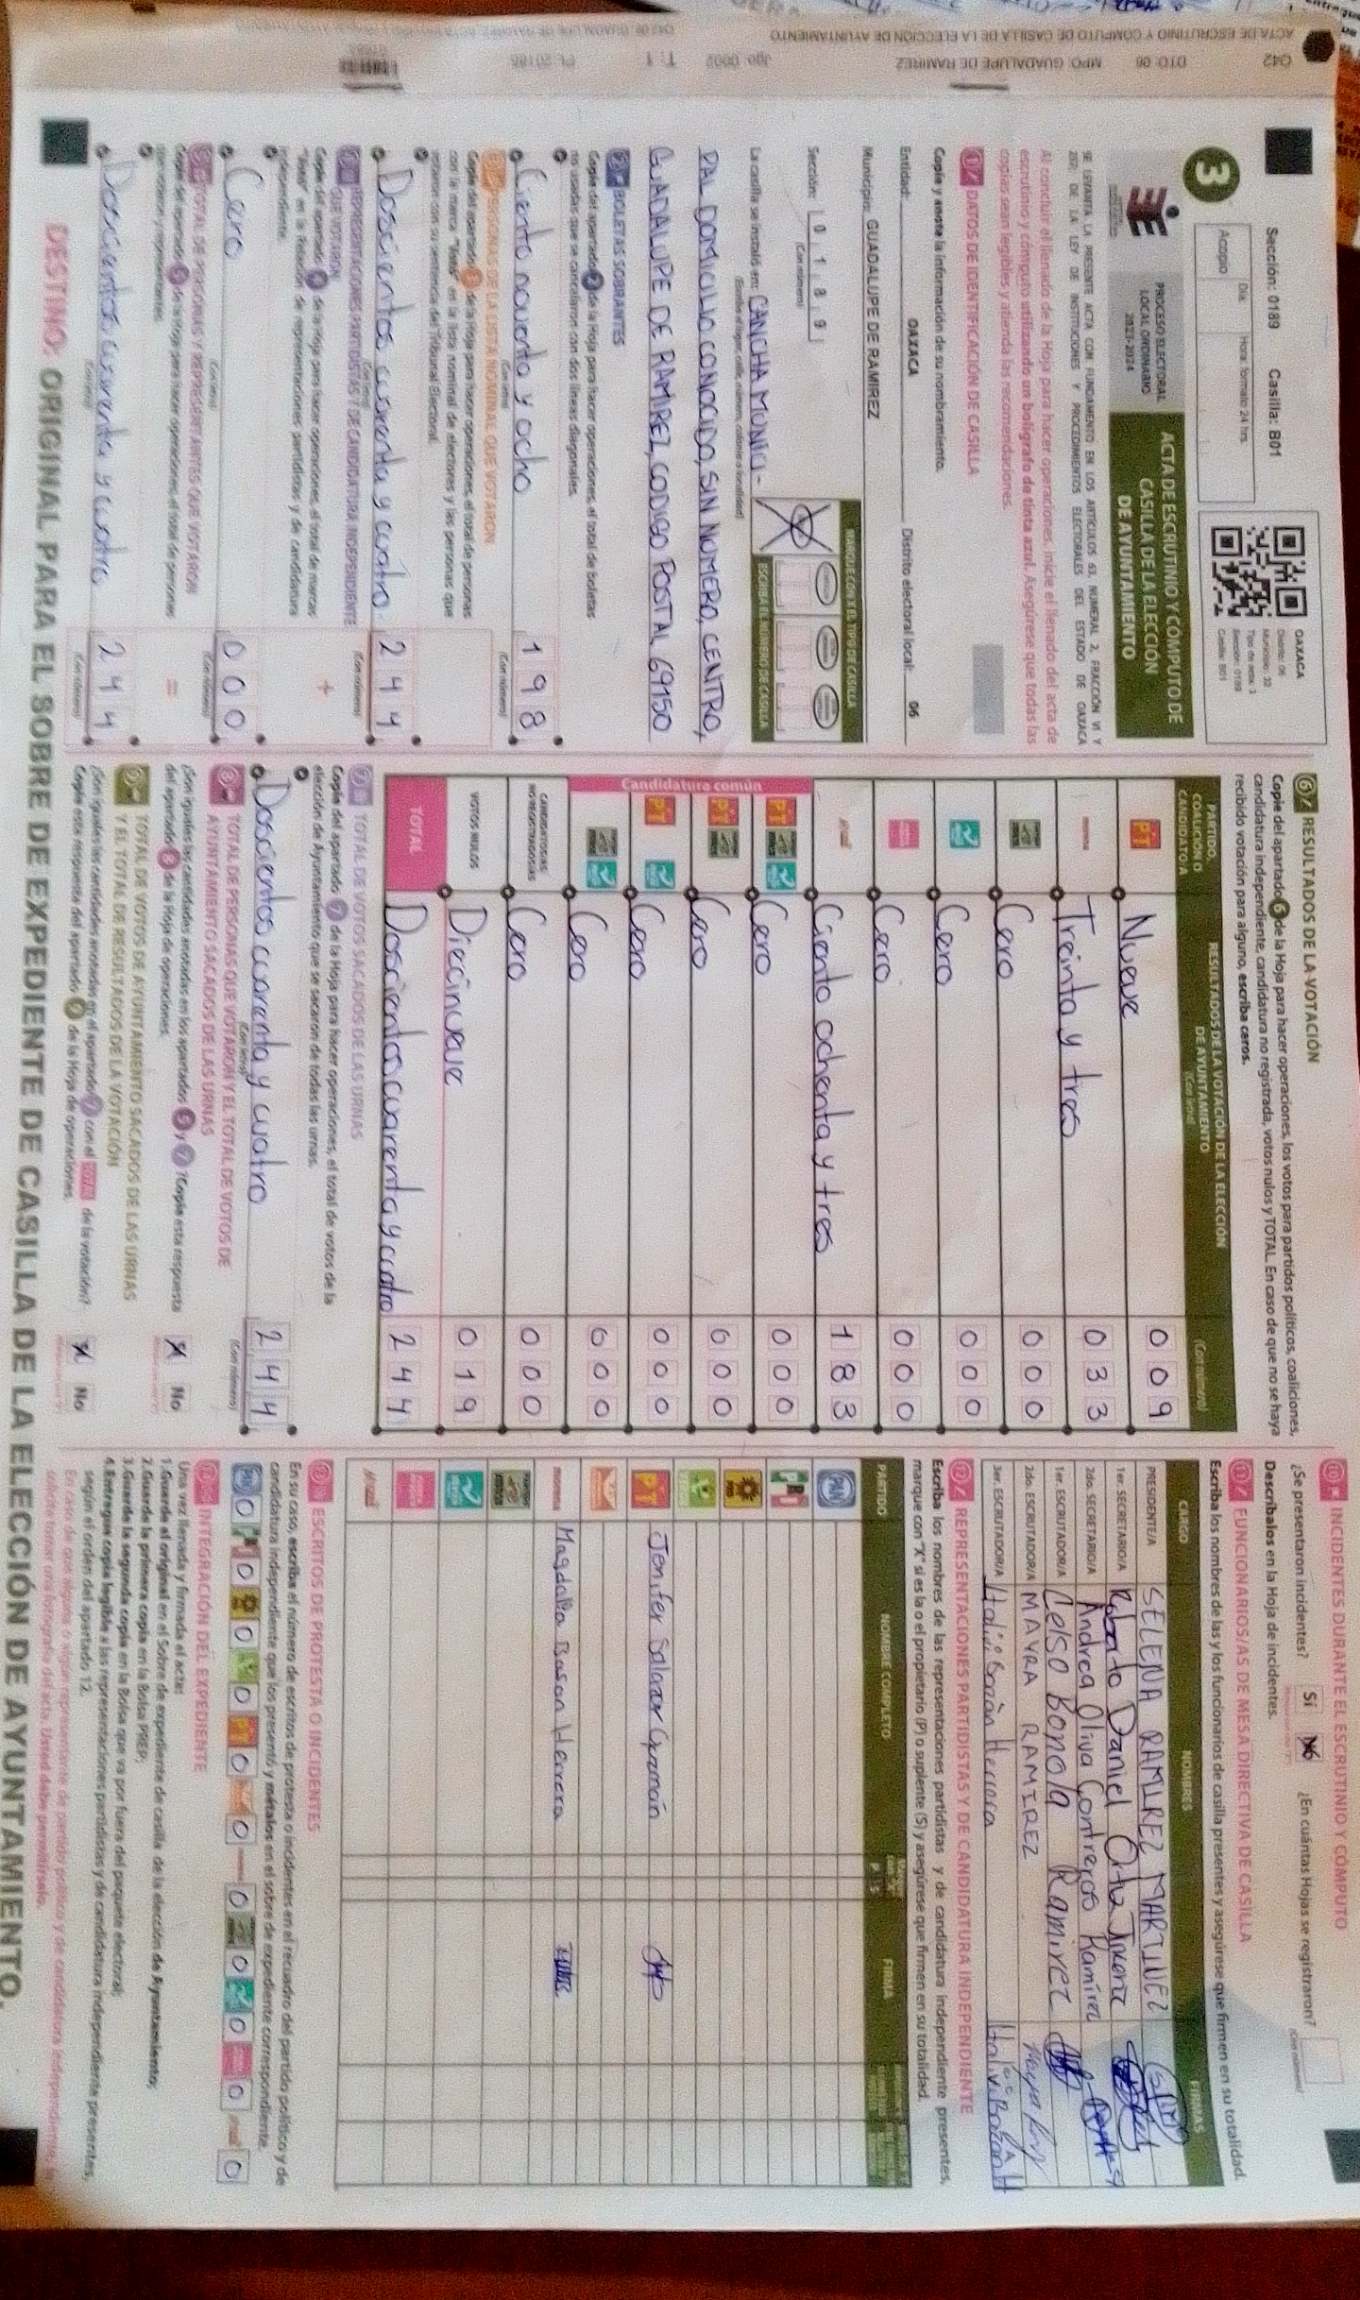 ACTA DE ESCRUTINIO Y CÓMPUTO DE CASILLA DE LA ELECCIÓN DE AYUNTAMIENTO
042 DTO: 06 MPO: GUADALUPE DE RAMIREZ
Sección: 0189 Casilla: B01
Día Hora: formato 24 hrs.
Acopio
OAXACA
3
PROCESO ELECTORAL
LOCAL ORDINARIO
2023-2024
ACTA DE ESCRUTINIO Y CÓMPUTO DE
CASILLA DE LA ELECCIÓN
DE AYUNTAMIENTO
SE LEVANTA LA PRESENTE ACTA CON FUNDAMENTO EN LOS ARTÍCULOS 63, NUMERAL 2, FRACCIÓN VI Y
DE LA LEY DE INSTITUCIONES Y PROCEDIMIENTOS ELECTORALES DEL ESTADO DE OAXACA
Al concluir el llenado de la Hoja para hacer operaciones, inicie el llenado del acta de
escrutinio y cómputo utilizando un bolígrafo de tinta azul. Asegúrese que todas las
copias sean legibles y atienda las recomendaciones.
1 DATOS DE IDENTIFICACIÓN DE CASILLA
Copie y anote la información de su nombramiento.
Entidad: OAXACA Distrito electoral local: 06
Municipio: GUADALUPE DE RAMIREZ
Sección: 0 1 8 9
(Con número)
MARQUE CON X EL TIPO DE CASILLA
ESCRIBA EL NÚMERO DE CASILLA
La casilla se instaló en: CANCHA MUNICI-
PAL DOMICILIO CONOCIDO, SIN NUMERO, CENTRO,
GUADALUPE DE RAMIREZ, CODIGO POSTAL 69150
2 BOLETAS SOBRANTES
Copie del apartado 2 de la Hoja para hacer operaciones, el total de boletas
no usadas que se cancelaron con dos líneas diagonales.
Ciento noventa y ocho 1 9 8
3 PERSONAS DE LA LISTA NOMINAL QUE VOTARON
Copie del apartado 3 de la Hoja para hacer operaciones, el total de personas
con la marca "Votó" en la lista nominal de electores y las personas que
votaron con su sentencia del Tribunal Electoral.
Doscientos cuarenta y cuatro 2 4 4
4 REPRESENTACIONES PARTIDISTAS Y DE CANDIDATURA INDEPENDIENTE
QUE VOTARON
Copie del apartado 4 de la Hoja para hacer operaciones, el total de marcas
"Votó" en la Relación de representaciones partidistas y de candidatura
independiente.
Cero 0 0 0
5 TOTAL DE PERSONAS Y REPRESENTANTES QUE VOTARON
Copie del apartado 5 de la Hoja para hacer operaciones, el total de personas
que votaron y representantes.
Doscientos cuarenta y cuatro 2 4 4
6 RESULTADOS DE LA VOTACIÓN
Copie del apartado 6 de la Hoja para hacer operaciones, los votos para partidos políticos, coaliciones,
candidatura independiente, candidatura no registrada, votos nulos y TOTAL. En caso de que no se haya
recibido votación para alguno, escriba ceros.
PARTIDO, COALICIÓN O CANDIDATO/A
RESULTADOS DE LA VOTACIÓN DE LA ELECCIÓN DE AYUNTAMIENTO
(Con letra) (Con número)
PT Nueve 0 0 9
morena Treinta y tres 0 3 3
Cero 0 0 0
Cero 0 0 0
Cero 0 0 0
Ciento ochenta y tres 1 8 3
Candidatura común
PT Cero 0 0 0
PT Cero 0 0 0
PT Cero 0 0 0
Cero 0 0 0
CANDIDATOS/AS NO REGISTRADOS/AS Cero 0 0 0
VOTOS NULOS Diecinueve 0 1 9
TOTAL Doscientos cuarenta y cuatro 2 4 4
7 TOTAL DE VOTOS SACADOS DE LAS URNAS
Copie del apartado 7 de la Hoja para hacer operaciones, el total de votos de la
elección de Ayuntamiento que se sacaron de todas las urnas.
Doscientos cuarenta y cuatro 2 4 4
8 TOTAL DE PERSONAS QUE VOTARON Y EL TOTAL DE VOTOS DE
AYUNTAMIENTO SACADOS DE LAS URNAS
¿Son iguales las cantidades anotadas en los apartados 5 y 7? Copie esta respuesta
del apartado 8 de la Hoja de operaciones.
No
9 TOTAL DE VOTOS DE AYUNTAMIENTO SACADOS DE LAS URNAS
Y EL TOTAL DE RESULTADOS DE LA VOTACIÓN
¿Son iguales las cantidades anotadas en el apartado 7 con el TOTAL de la votación?
Copie esta respuesta del apartado 9 de la Hoja de operaciones.
No
10 INCIDENTES DURANTE EL ESCRUTINIO Y CÓMPUTO
¿Se presentaron incidentes? Sí No ¿En cuántas Hojas se registraron?
Descríbalos en la Hoja de incidentes.
11 FUNCIONARIOS/AS DE MESA DIRECTIVA DE CASILLA
Escriba los nombres de las y los funcionarios de casilla presentes y asegúrese que firmen en su totalidad.
CARGO NOMBRES FIRMAS
PRESIDENTE/A SELENA RAMIREZ MARTINEZ
1er. SECRETARIO/A Roberto Daniel Ortiz
2do. SECRETARIO/A Andrea Oliva Contreras Ramírez
1er. ESCRUTADOR/A Celso Bonola Ramirez
2do. ESCRUTADOR/A MAYRA RAMIREZ
3er. ESCRUTADOR/A Herrera
12 REPRESENTACIONES PARTIDISTAS Y DE CANDIDATURA INDEPENDIENTE
Escriba los nombres de las representaciones partidistas y de candidatura independiente presentes,
marque con "X" si es la o el propietario (P) o suplente (S) y asegúrese que firmen en su totalidad.
PARTIDO NOMBRE COMPLETO FIRMA
PAN
PRI
PRD
PT Jenifer Salazar Guzmán
morena Herrera
13 ESCRITOS DE PROTESTA O INCIDENTES
En su caso, escriba el número de escritos de protesta o incidentes en el recuadro del partido político y de
candidatura independiente que los presentó y métalos en el sobre de expediente correspondiente.
0 0 0 0 0 0 0 0 0 0 0
14 INTEGRACIÓN DEL EXPEDIENTE
Una vez llenada y firmada el acta:
1.Guarde el original en el Sobre de expediente de casilla de la elección de Ayuntamiento;
2.Guarde la primera copia en la Bolsa PREP;
3.Guarde la segunda copia en la Bolsa que va por fuera del paquete electoral;
4.Entregue copia legible a las representaciones partidistas y de candidatura independiente presentes,
según el orden del apartado 12.
DESTINO: ORIGINAL PARA EL SOBRE DE EXPEDIENTE DE CASILLA DE LA ELECCIÓN DE AYUNTAMIENTO.